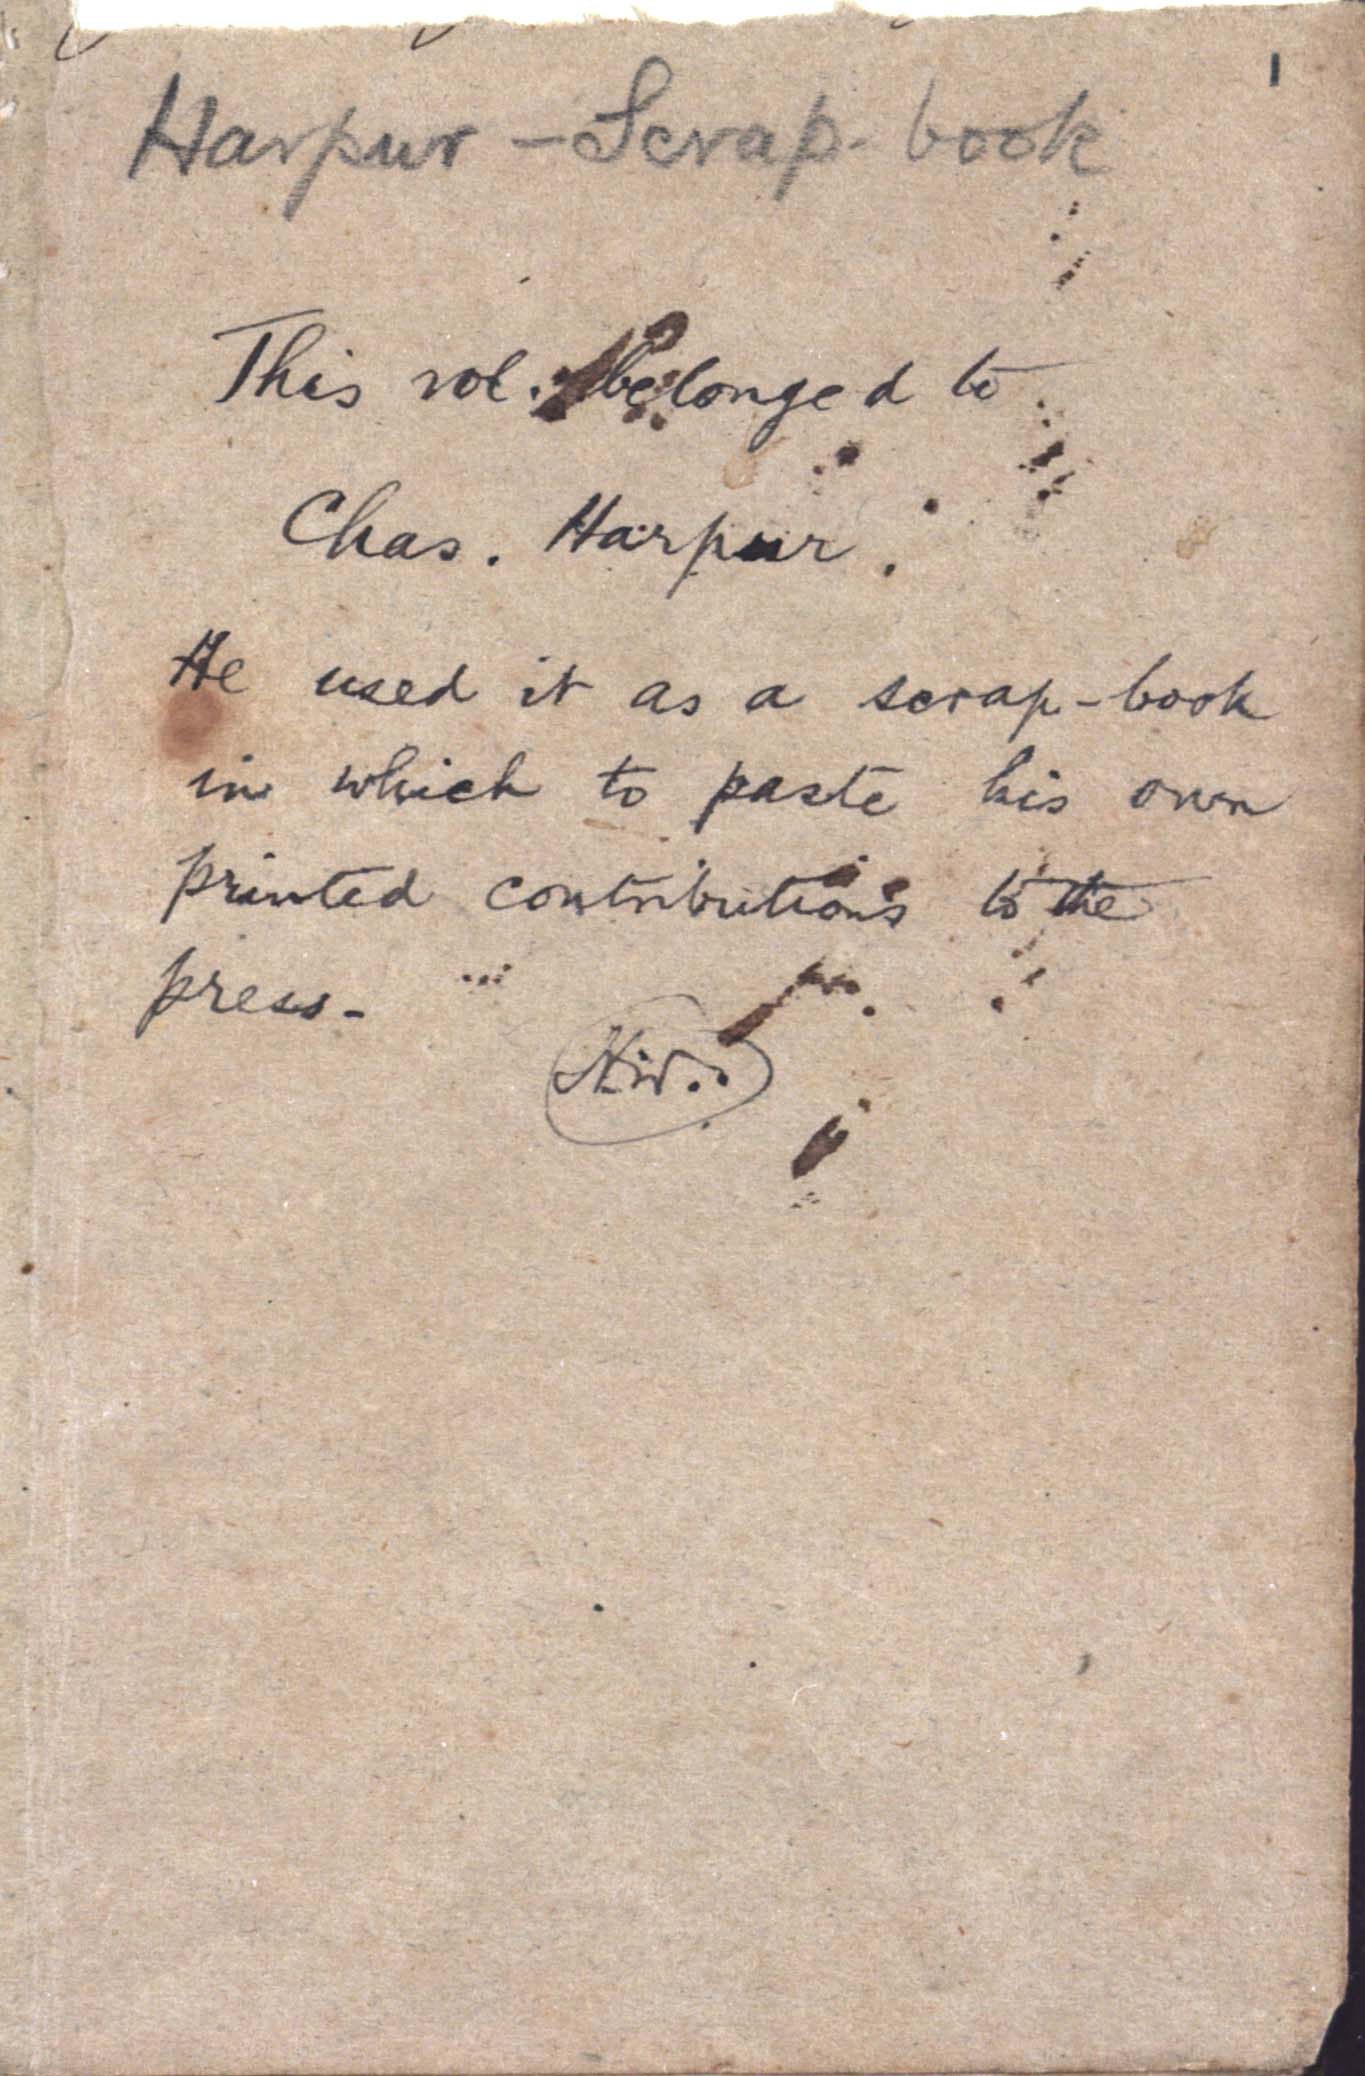 1
Harpur - Scrap-book
This vol. belonged to
Chas. Harpur.
He used it as a scrap-book
in which to paste his own
printed contributions to the
press-